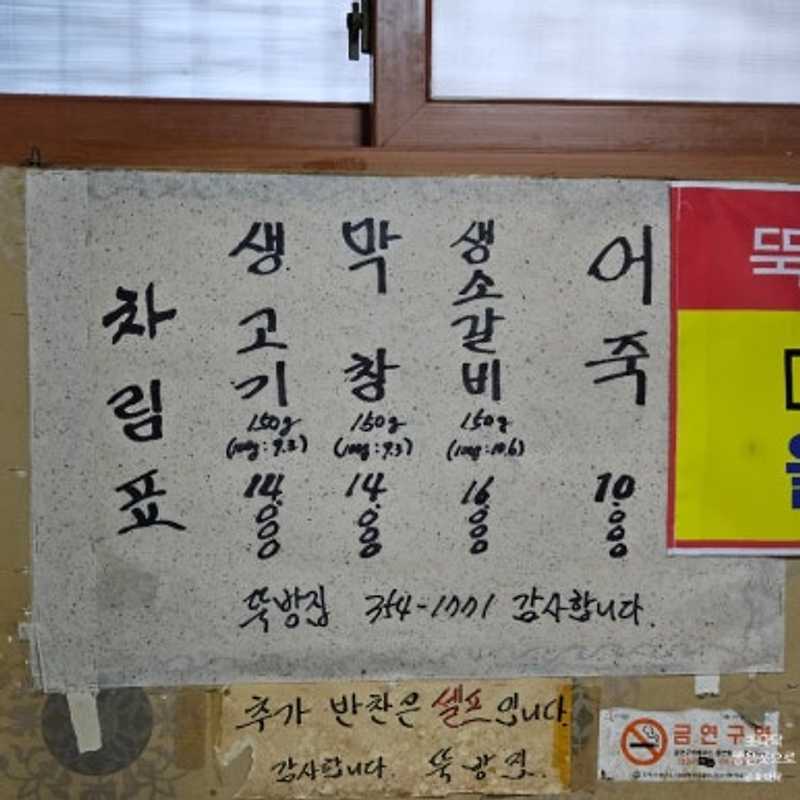 차림표
생고기
150g
(100g : 9.3)
14.000
막창
150g
(100g : 9.3)
14.000
생소갈비
150g
(100g : 10.6)
16.000
어죽
10.000
뚝방집 354-1001 감사합니다.
추가 반찬은 셀프입니다.
감사합니다. 뚝방집.
뚝
을
금연구역